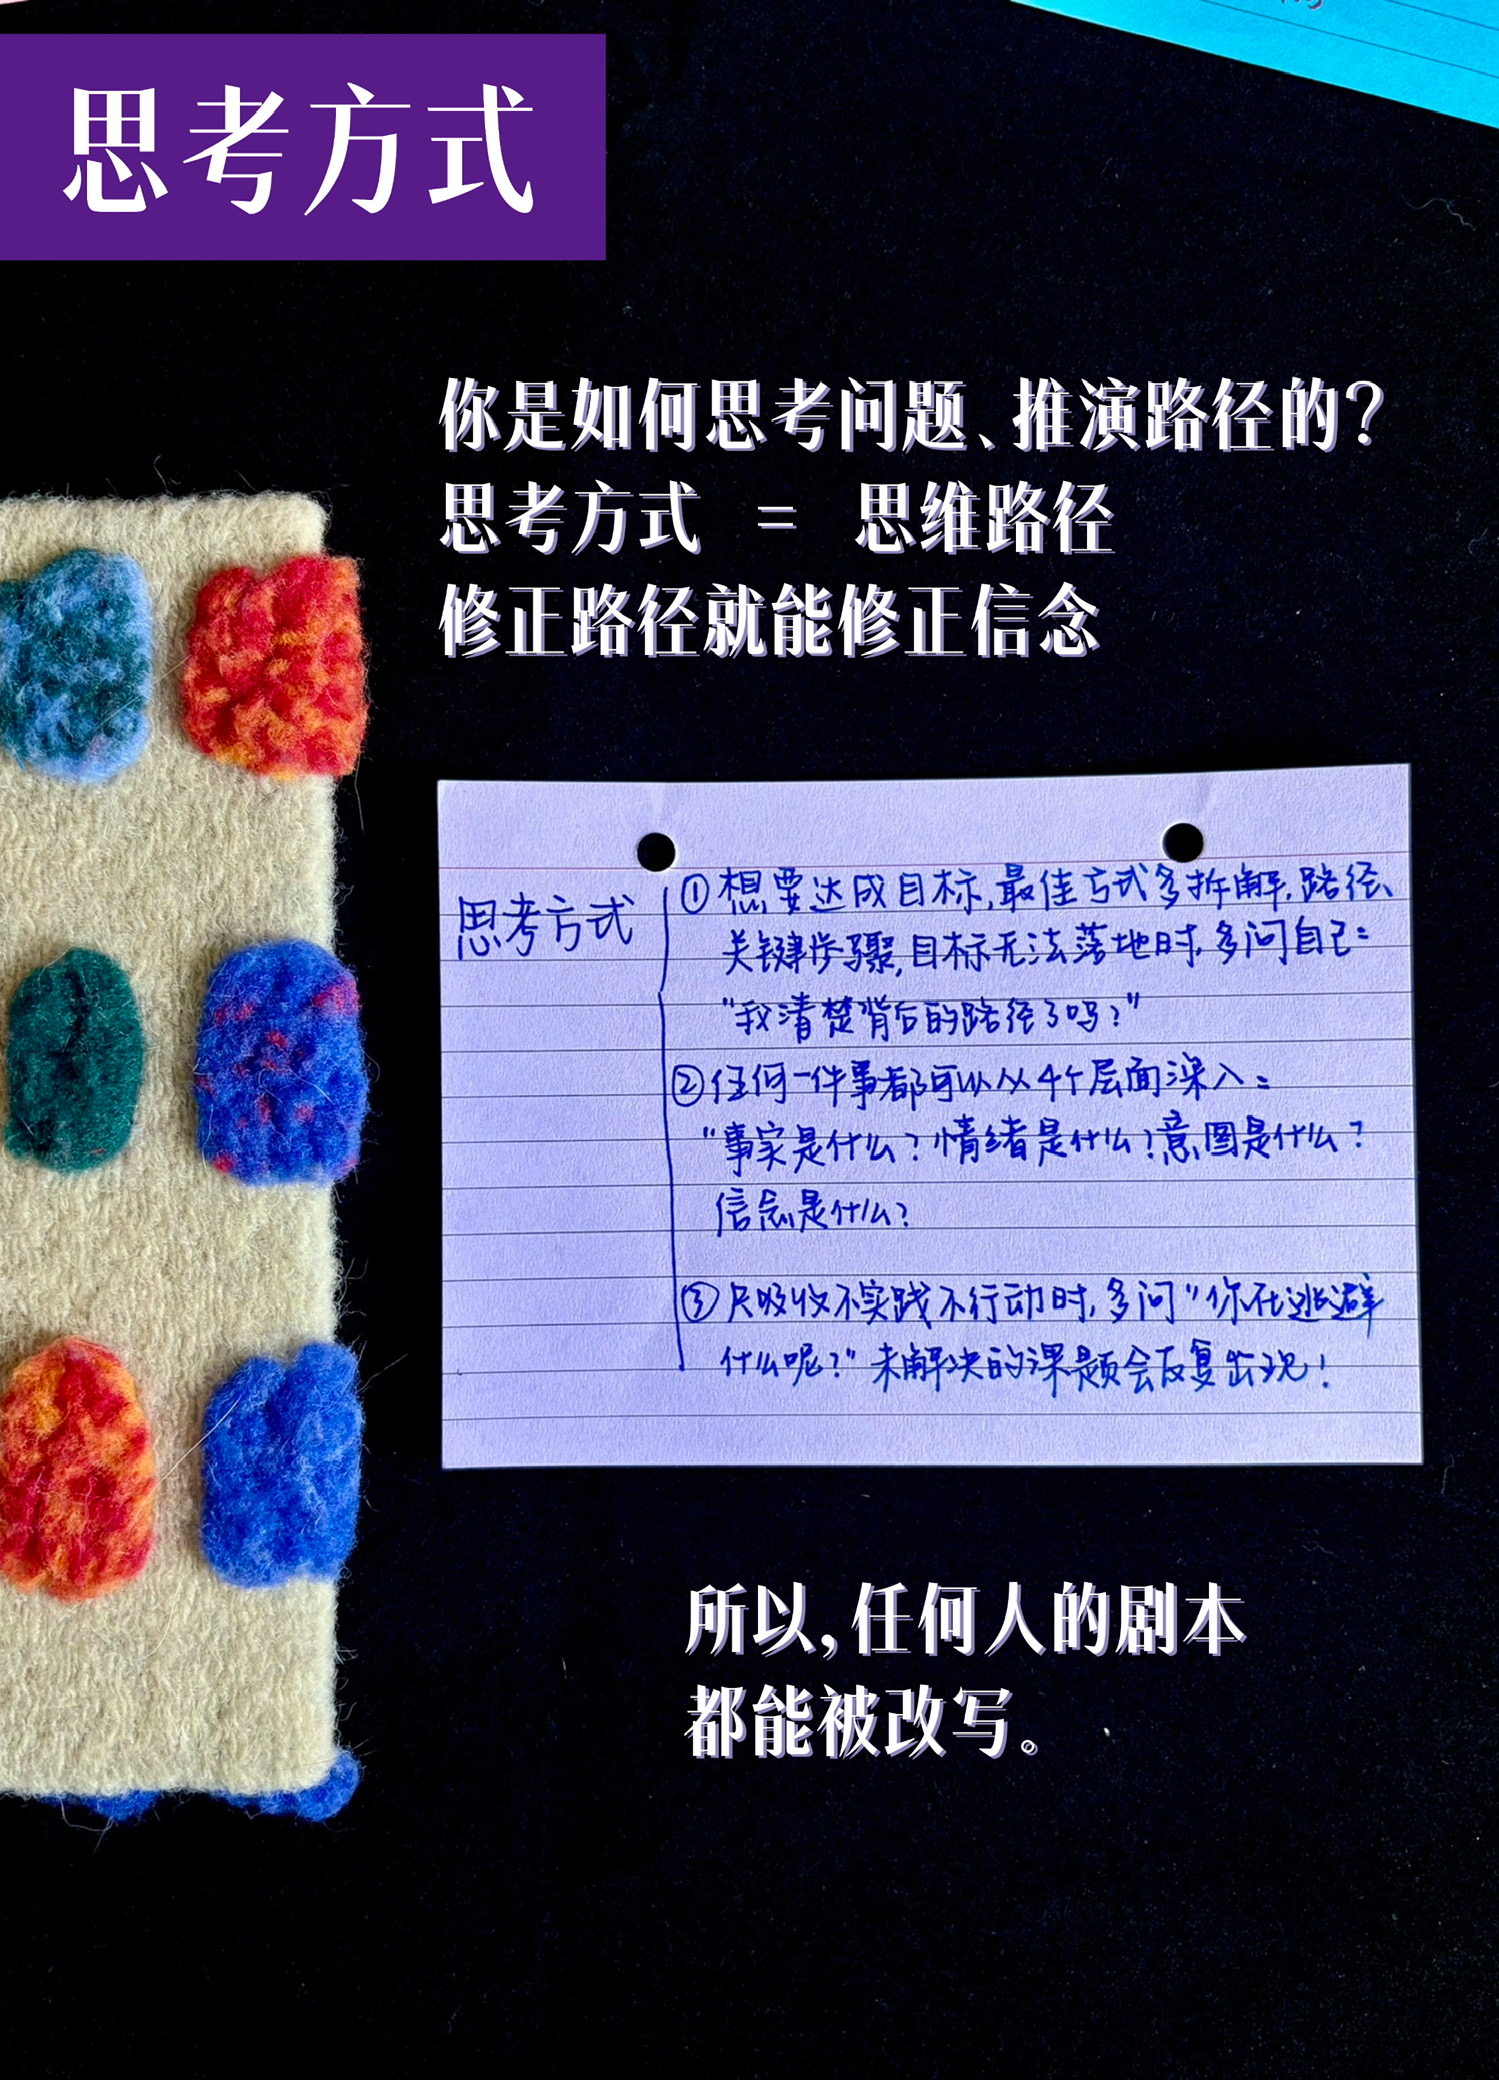 思考方式
你是如何思考问题、推演路径的？
思考方式 = 思维路径
修正路径就能修正信念
思考方式
①想要达成目标,最佳方式多拆解,路径、
关键步骤,目标无法落地时,多问自己:
"我清楚背后的路径了吗?"
②任何一件事都可以从4个层面深入:
"事实是什么?情绪是什么?意图是什么?
信念是什么?
③只吸收不实践不行动时,多问"你在逃避
什么呢?"未解决的课题会反复出现!
所以,任何人的剧本
都能被改写。